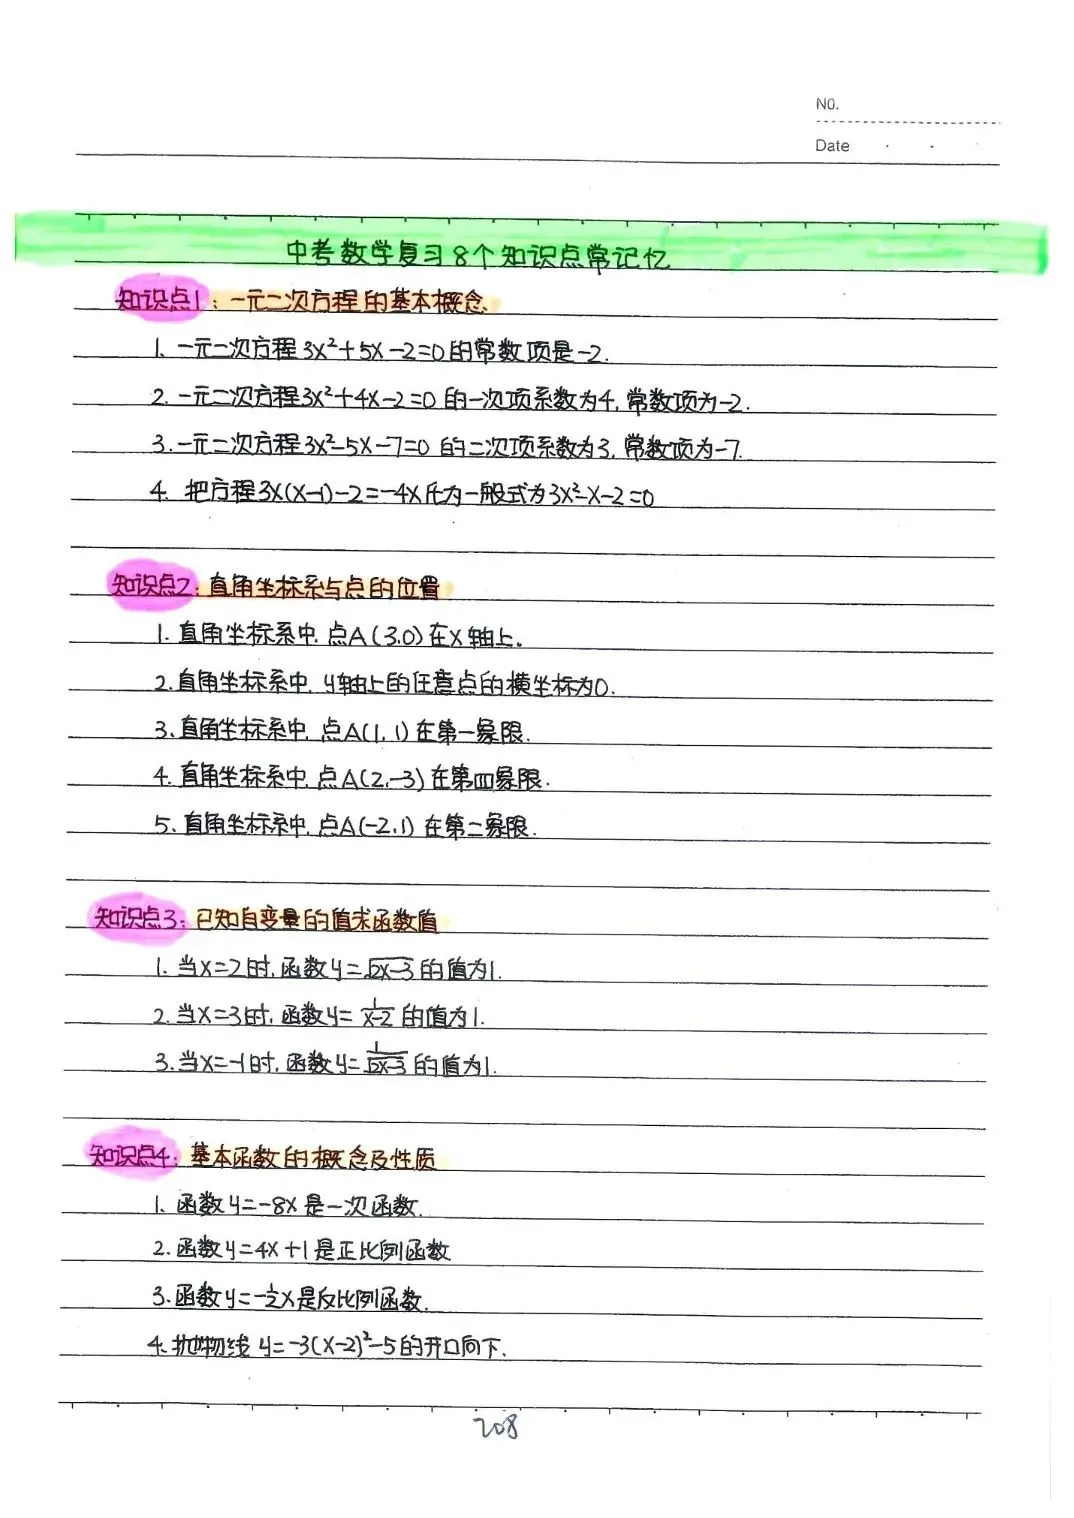 NO.
Date
中考数学复习8个知识点常记忆
知识点1：一元二次方程的基本概念
1. 一元二次方程3x²+5x-2=0的常数项是-2.
2. 一元二次方程3x²+4x-2=0的一次项系数为4, 常数项为-2.
3. 一元二次方程3x²-5x-7=0的二次项系数为3, 常数项为-7.
4. 把方程3x(x-1)-2=-4x化为一般式为3x²-x-2=0
知识点2：直角坐标系与点的位置
1. 直角坐标系中, 点A(3.0)在x轴上。
2. 直角坐标系中, y轴上的任意点的横坐标为0.
3. 直角坐标系中, 点A(1,1)在第一象限.
4. 直角坐标系中, 点A(2,-3)在第四象限.
5. 直角坐标系中, 点A(-2,1)在第二象限.
知识点3：已知自变量的值求函数值
1. 当x=2时, 函数y=√(2x-3)的值为1.
2. 当x=3时, 函数y=1/(x-2)的值为1.
3. 当x=-1时, 函数y=1/√(2x-3)的值为1.
知识点4：基本函数的概念及性质
1. 函数y=-8x是一次函数.
2. 函数y=4x+1是正比例函数
3. 函数y=-½x是反比例函数.
4. 抛物线y=-3(x-2)²-5的开口向下.
208